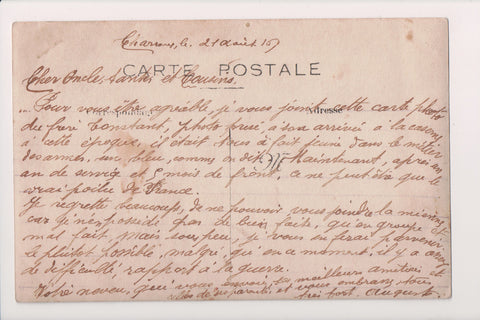 Charroux, le 21 août 16
CARTE POSTALE
Cher Oncle, tante et Cousins.
Pour vous être agréable, je vous joint cette carte photo
Correspondance
Adresse
du frère Constant, photo prise à son arrivée à la caserne
à cette époque, il était tous à fait jeune dans le métier
des armes, un bleu, comme on dit. Maintenant, après un
an de service et 5 mois de front, ce ne peut être que le
vrai poilu de France.
Je regrette beaucoup, de ne pouvoir vous joindre la mienne
car je n'en possède pas de bien faite, qu'en groupe et
mal fait, mais sous peu, je vous en ferai parvenir
le plutôt possible, malgré, qu'en ce moment, il y a assez
de difficulté rapport à la guerre.
Votre neveu, qui vous envoie ses meilleurs amitiés et
et vous embrasse tous
très fort. August